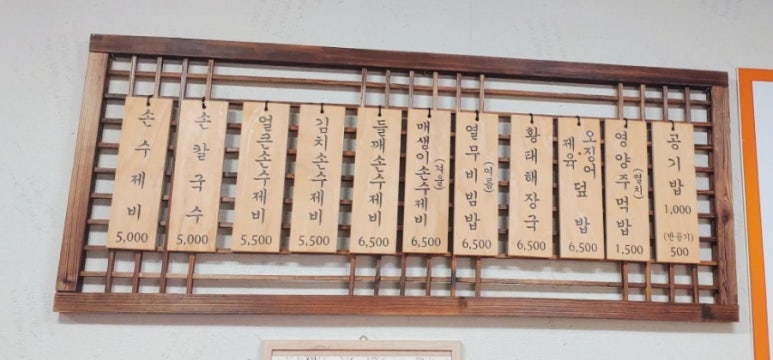 손수제비
5,000
손칼국수
5,000
얼큰손수제비
5,500
김치손수제비
5,500
들깨손수제비
6,500
매생이손수제비
(겨울)
6,500
열무비빔밥
(여름)
6,500
황태해장국
6,500
오징어
제육·덮밥
6,500
영양주먹밥
(멸치)
1,500
공기밥
1,000
(반공기)
500